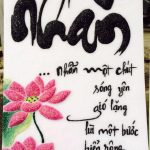 Nhẫn
... nhẫn một chút
sóng yên
gió lặng
lùi một bước
biển rộng